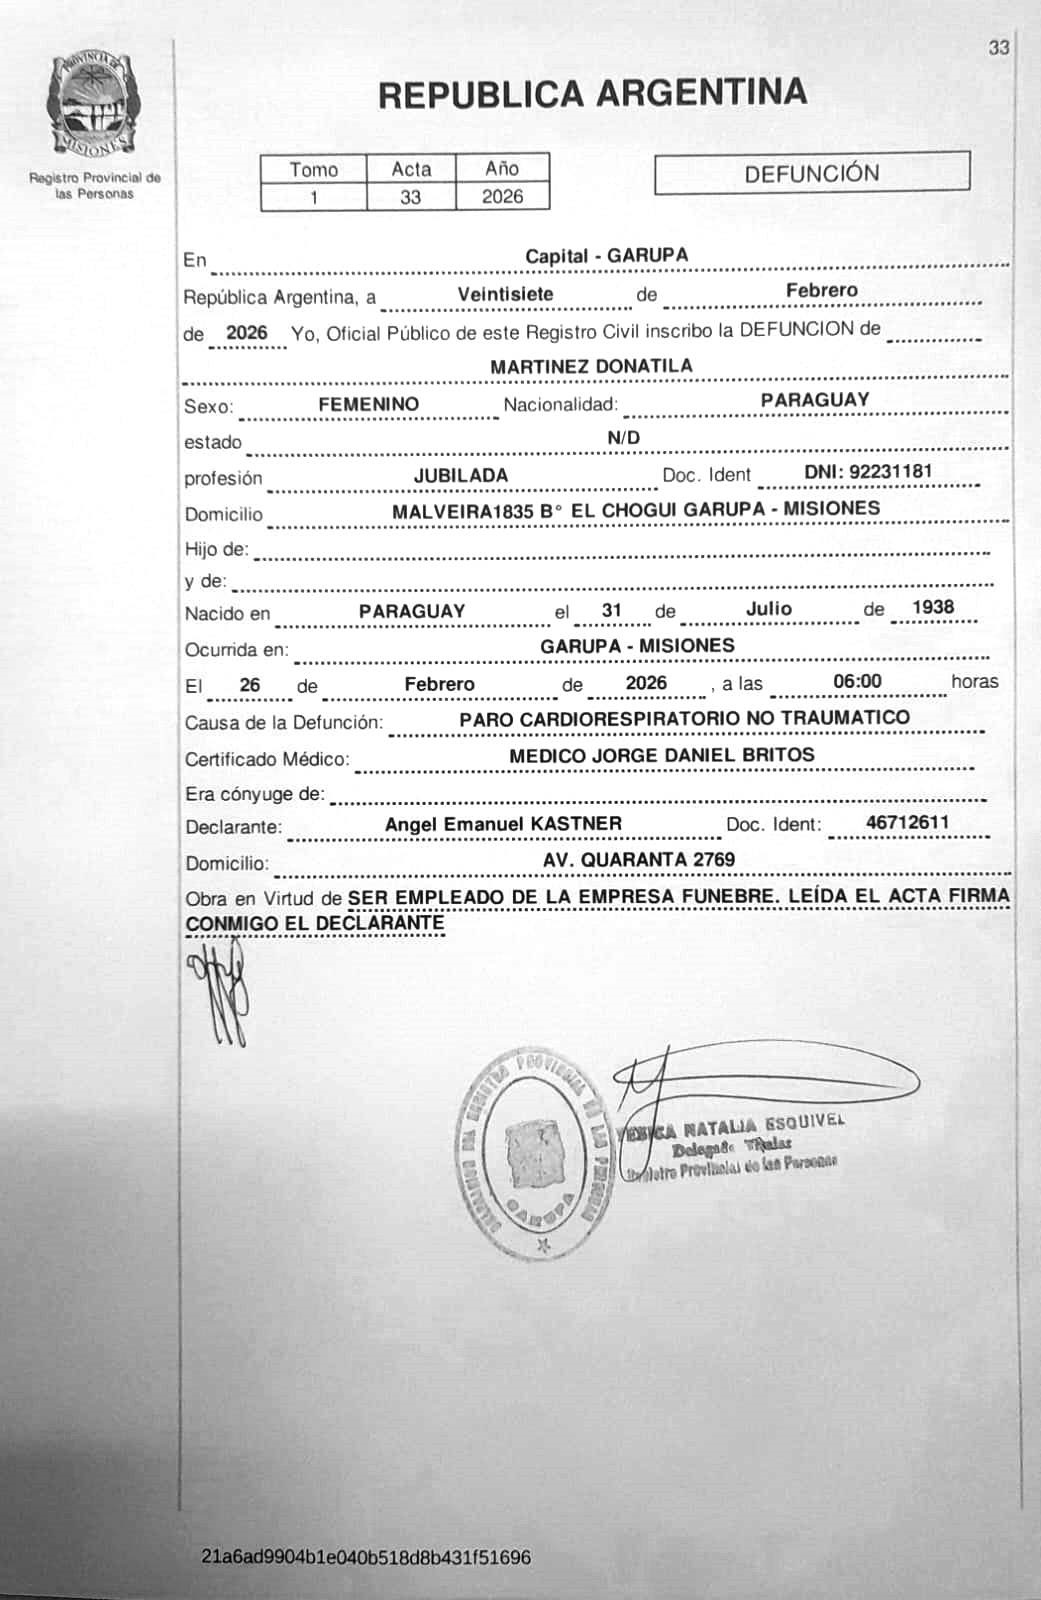 33
PROVINCIA DE
MISIONES
Registro Provincial de
las Personas
REPUBLICA ARGENTINA
Tomo Acta Año
1 33 2026
DEFUNCIÓN
En Capital - GARUPA
República Argentina, a Veintisiete de Febrero
de 2026 Yo, Oficial Público de este Registro Civil inscribo la DEFUNCION de
MARTINEZ DONATILA
Sexo: FEMENINO Nacionalidad: PARAGUAY
estado N/D
profesión JUBILADA Doc. Ident DNI: 92231181
Domicilio MALVEIRA1835 B° EL CHOGUI GARUPA - MISIONES
Hijo de:
y de:
Nacido en PARAGUAY el 31 de Julio de 1938
Ocurrida en: GARUPA - MISIONES
El 26 de Febrero de 2026 , a las 06:00 horas
Causa de la Defunción: PARO CARDIORESPIRATORIO NO TRAUMATICO
Certificado Médico: MEDICO JORGE DANIEL BRITOS
Era cónyuge de:
Declarante: Angel Emanuel KASTNER Doc. Ident: 46712611
Domicilio: AV. QUARANTA 2769
Obra en Virtud de SER EMPLEADO DE LA EMPRESA FUNEBRE. LEÍDA EL ACTA FIRMA
CONMIGO EL DECLARANTE
REGISTRO PROVINCIAL DE LAS PERSONAS
GARUPA
NATALIA ESQUIVEL
Delegado Titular
Registro Provincial de las Personas
21a6ad9904b1e040b518d8b431f51696